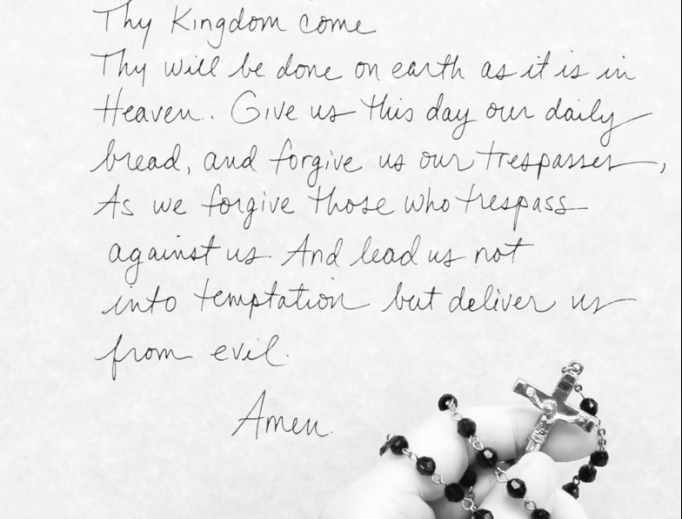 Thy Kingdom come
Thy will be done on earth as it is in
Heaven. Give us this day our daily
bread, and forgive us our trespasses,
As we forgive those who trespass
against us. And lead us not
into temptation but deliver us
from evil.
Amen.